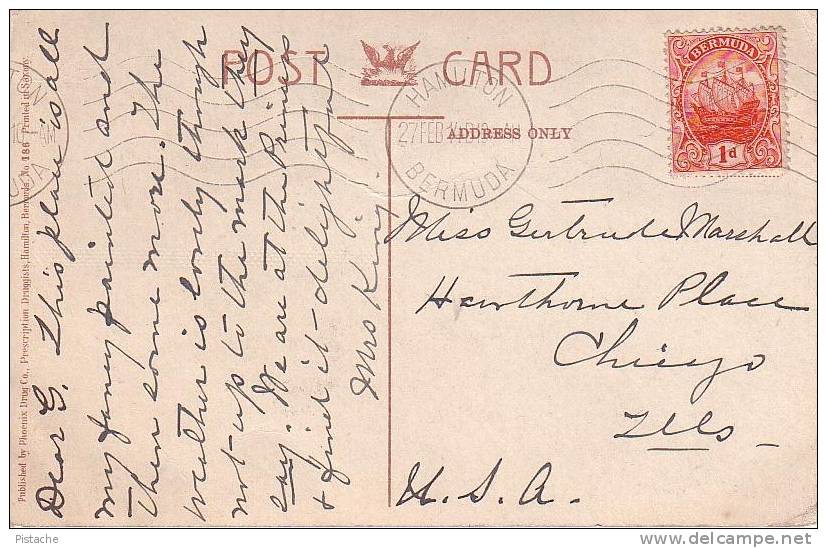 POST CARD
ADDRESS ONLY
BERMUDA
1d
HAMILTON
27 FEB
BERMUDA
Published by Phoenix Drug Co., Prescription Druggists, Hamilton, Bermuda, No. 186 Printed in Saxony
Dear G. This place is all
my fancy painted and
then some more. The
weather is lovely though
not up to the mark they
say. We are at the Princess
& find it delightful
Mrs King.
Miss Gertrude Marshall
Hawthorne Place
Chicago
Ills
U. S. A.
Pistache
www.delcampe.net